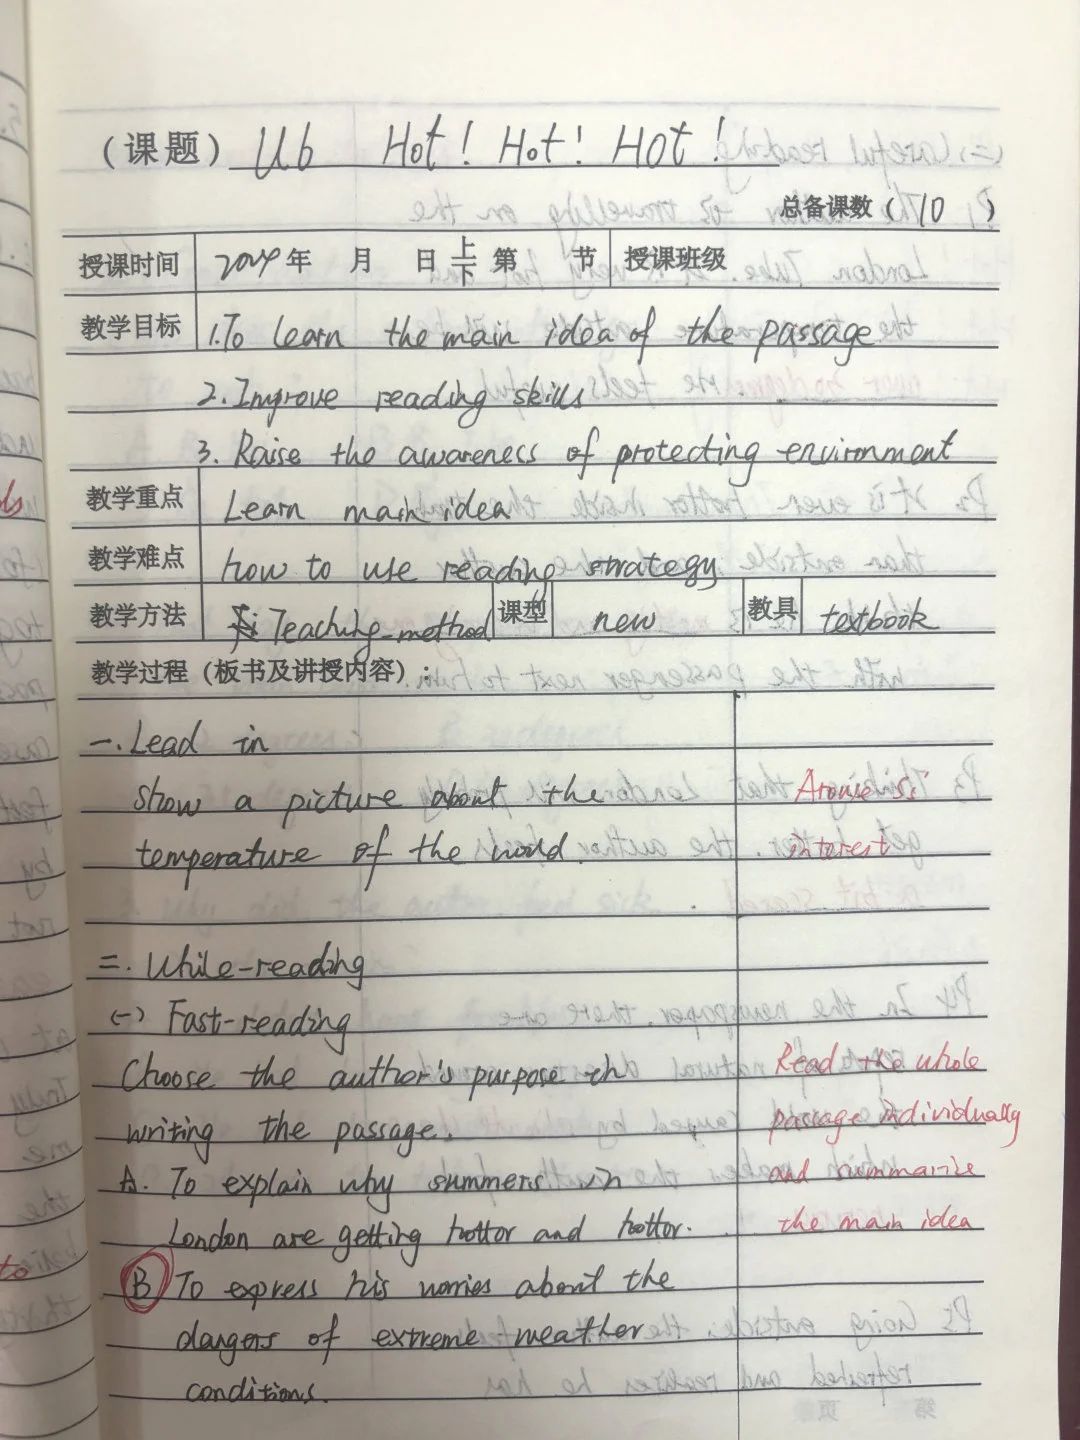 (课题) U6 Hot! Hot! Hot!
总备课数( 10 )
授课时间 2024年 月 日 上/下 第 节 授课班级
教学目标 1.To learn the main idea of the passage
2.Improve reading skills
3. Raise the awareness of protecting environment
教学重点 Learn main idea
教学难点 how to use reading strategy
教学方法 Teaching method 课型 new 教具 textbook
教学过程(板书及讲授内容):
一.Lead in
show a picture about the Arouse Ss
temperature of the world. interest
二. While-reading
(一) Fast-reading
Choose the author's purpose in Read the whole
writing the passage. passage individually
A. To explain why summers in and summarize
London are getting hottor and hottor. the main idea
B To express his worries about the
dangers of extreme weather
conditions.